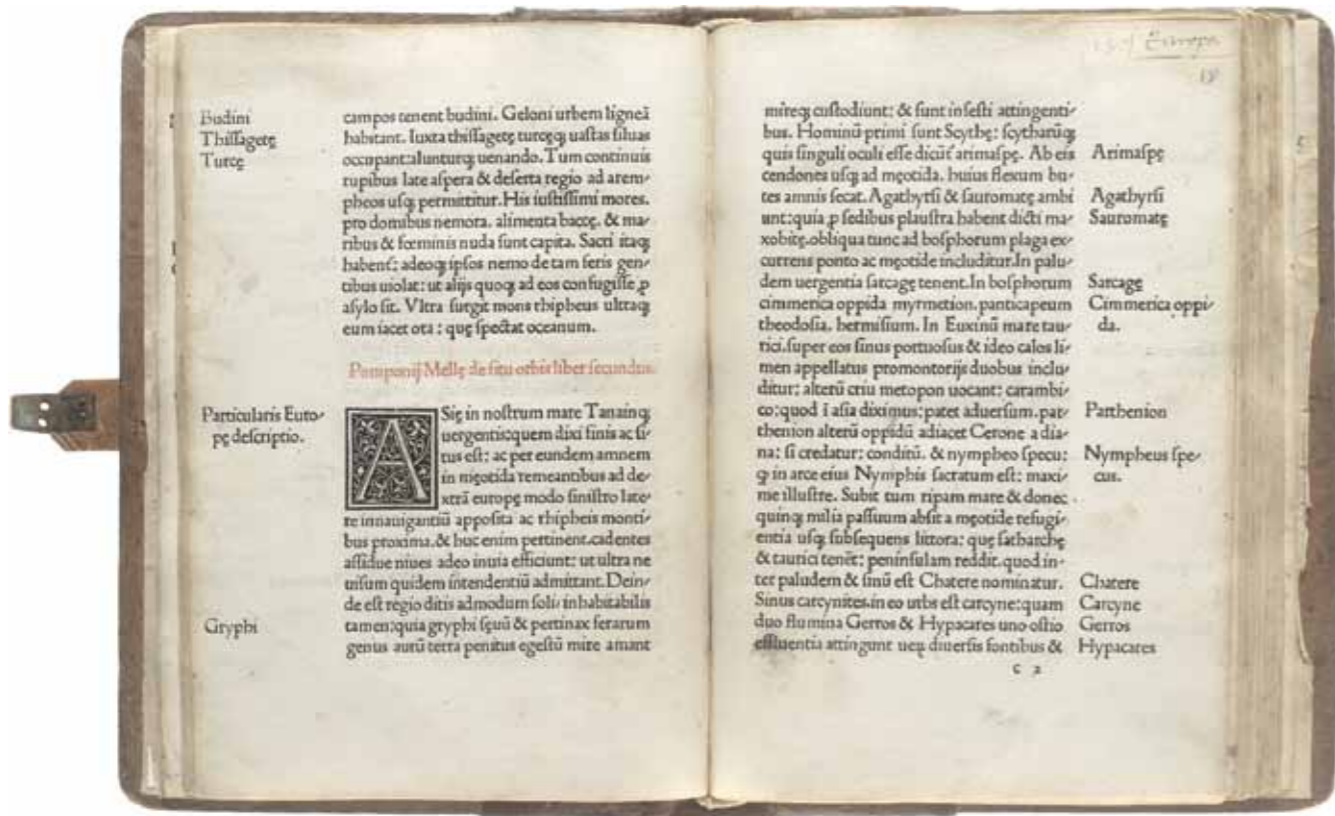 Budini
Thissagetę
Turcę
campos tenent budini. Geloni urbem ligneā
habitant. Iuxta thissagetę turcęq; uastas siluas
occupant: alunturq; uenando. Tum continuis
rupibus late aspera & deserta regio ad arem-
pheos usq; permittitur. His iustissimi mores.
pro domibus nemora. alimenta baccę. & ma-
ribus & fœminis nuda sunt capita. Sacri itaq;
habent̄: adeoq; ipsos nemo de tam feris gen-
tibus uiolat: ut alijs quoq; ad eos confugisse p
asylo sit. Vltra surgit mons rhipheus ultraq;
eum iacet ora: quę spectat oceanum.
Pomponij Mellę de situ orbis liber secundus.
Particularis Euro-
pę descriptio.
ASię in nostrum mare Tanainq;
uergentis: quem dixi finis ac si-
tus est: ac per eundem amnem
in męotida remeantibus ad de-
xtrā europę modo sinistro late-
re innauigantiū apposita ac rhipheis monti-
bus proxima. & huc enim pertinent. cadentes
assidue niues adeo inuia efficiunt: ut ultra ne
uisum quidem intendentiū admittant. Dein-
de est regio ditis admodum soli: inhabitabilis
tamen: quia gryphi sęuū & pertinax ferarum
genus aurū terra penitus egestū mire amant
Gryphi
Europa
18
mireq; custodiunt: & sunt infesti attingenti-
bus. Hominū primi sunt Scythę: scytharūq;
quis singuli oculi esse dicūt̄ arimaspę. Ab eis
cendones usq; ad męotida. huius flexum bu-
tes amnis secat. Agathyrsi & sauromatę ambi
unt: quia p sedibus plaustra habent dicti ma-
xobitę. obliqua tunc ad bosphorum plaga ex-
currens ponto ac męotide includitur. In palu-
dem uergentia sarcagę tenent. In bosphorum
cimmerica oppida myrmetion. panticapeum
theodosia. hermisium. In Euxinū mare tau-
rici. super eos sinus portuosus & ideo calos li-
men appellatus promontorijs duobus inclu-
ditur: alterū criu metopon uocant: carambi-
co: quod ī asia diximus: patet aduersum. par-
thenion alterū oppidū adiacet Cerone a dia-
na: si credatur: conditū. & nympheo specu:
q in arce eius Nymphis sacratum est: maxi-
me illustre. Subit tum ripam mare & donec
quinq; milia passuum absit a męotide refugi-
entia usq; subsequens littora: quę satharchę
& taurici tenēt: peninsulam reddit. quod in-
ter paludem & sinū est Chatere nominatur.
Sinus carcynites. in eo urbs est carcyne: quam
duo flumina Gerros & Hypacares uno ostio
effluentia attingunt ueq; diuersis fontibus &
c 2
Arimaspę
Agathyrsi
Sauromatę
Sarcagę
Cimmerica oppi-
da.
Parthenion
Nympheus spe-
cus.
Chatere
Carcyne
Gerros
Hypacares